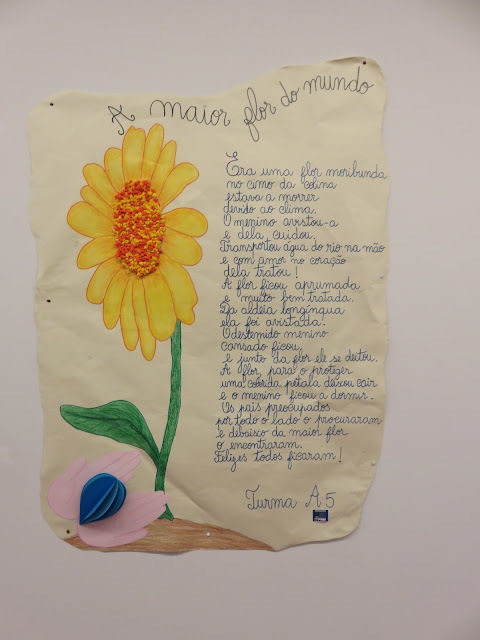 A maior flor do mundo
Era uma flor moribunda
no cimo da colina
estava a morrer
devido ao clima.
O menino avistou-a
e dela cuidou.
Transportou água do rio na mão
e com amor no coração
dela tratou!
A flor ficou aprumada
e muito bem tratada.
Da aldeia longínqua
ela foi avistada!
O destemido menino
cansado ficou
e junto da flor ele se deitou.
A flor, para o proteger
uma colorida pétala deixou cair
e o menino ficou a dormir.
Os pais preocupados
por todo o lado o procuraram
e debaixo da maior flor
o encontraram.
Felizes todos ficaram!
Turma A5